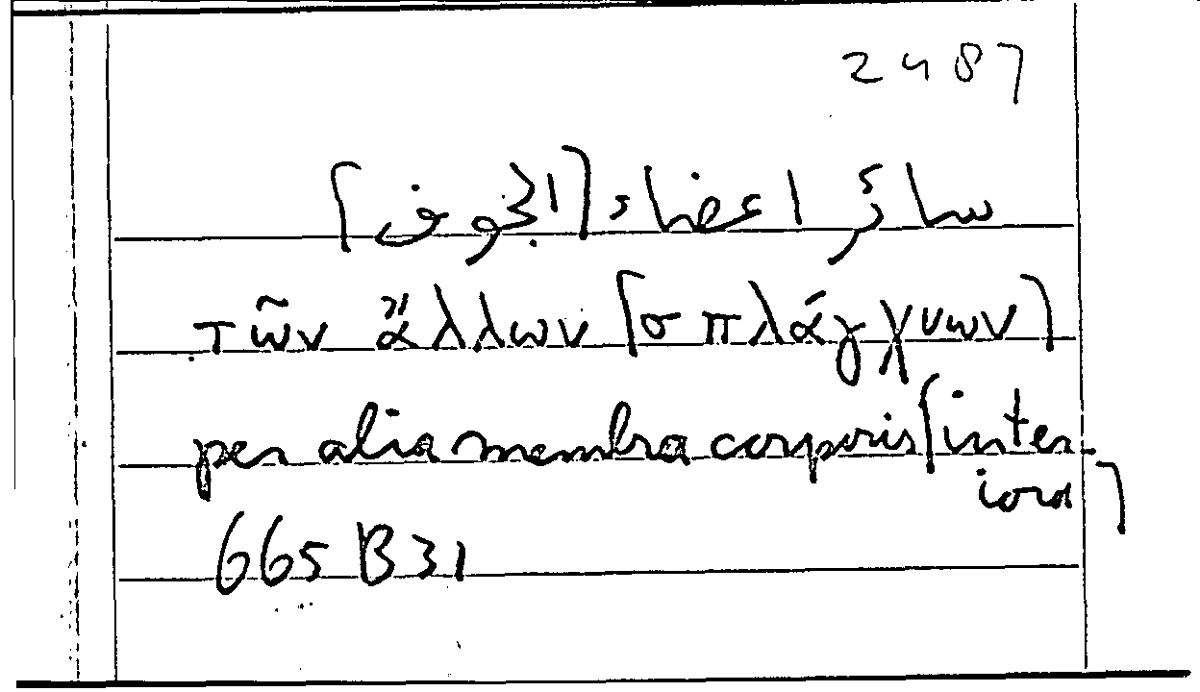 2487
سائر اعضاء [الجوف]
τῶν ἄλλων [σπλάγχνων]
per alia membra corporis [inter-
iora]
665 B 31